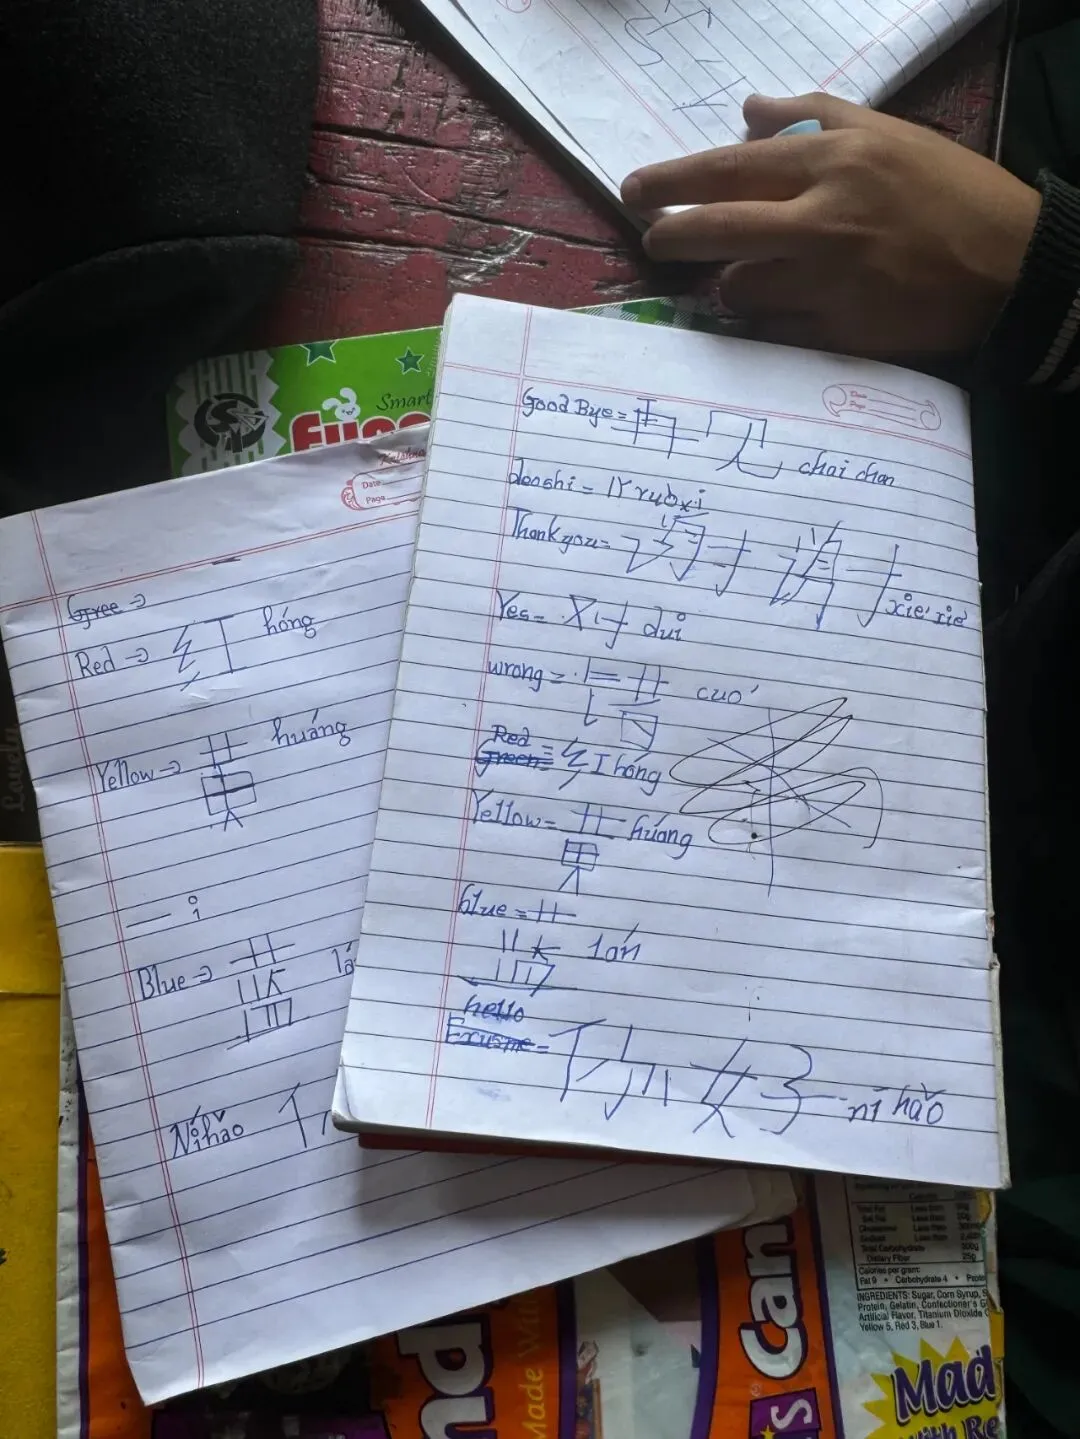 Smart
fun
Good Bye = 再见 chai chan
Thank you = 谢谢 xie' xie'
Yes = 对 dui
wrong = 错 cuo'
Red
Green = 红 hóng
Yellow = 黄 húang
blue = 蓝 lán
hello
Excusme = 你好 ní hǎo
Date
Page
Gree →
Red → 红 hóng
Yellow → 黄 huáng
Blue → 蓝 lá
Níhǎo
Lovely
Calories per gram:
Fat 9 • Carbohydrate 4 •
INGREDIENTS: Sugar, Corn Syrup,
Protein, Gelatin, Confectioner's
Artificial Flavor, Titanium Dioxide
Yellow 5, Red 3, Blue 1.
Made
Can
Mad
With Re